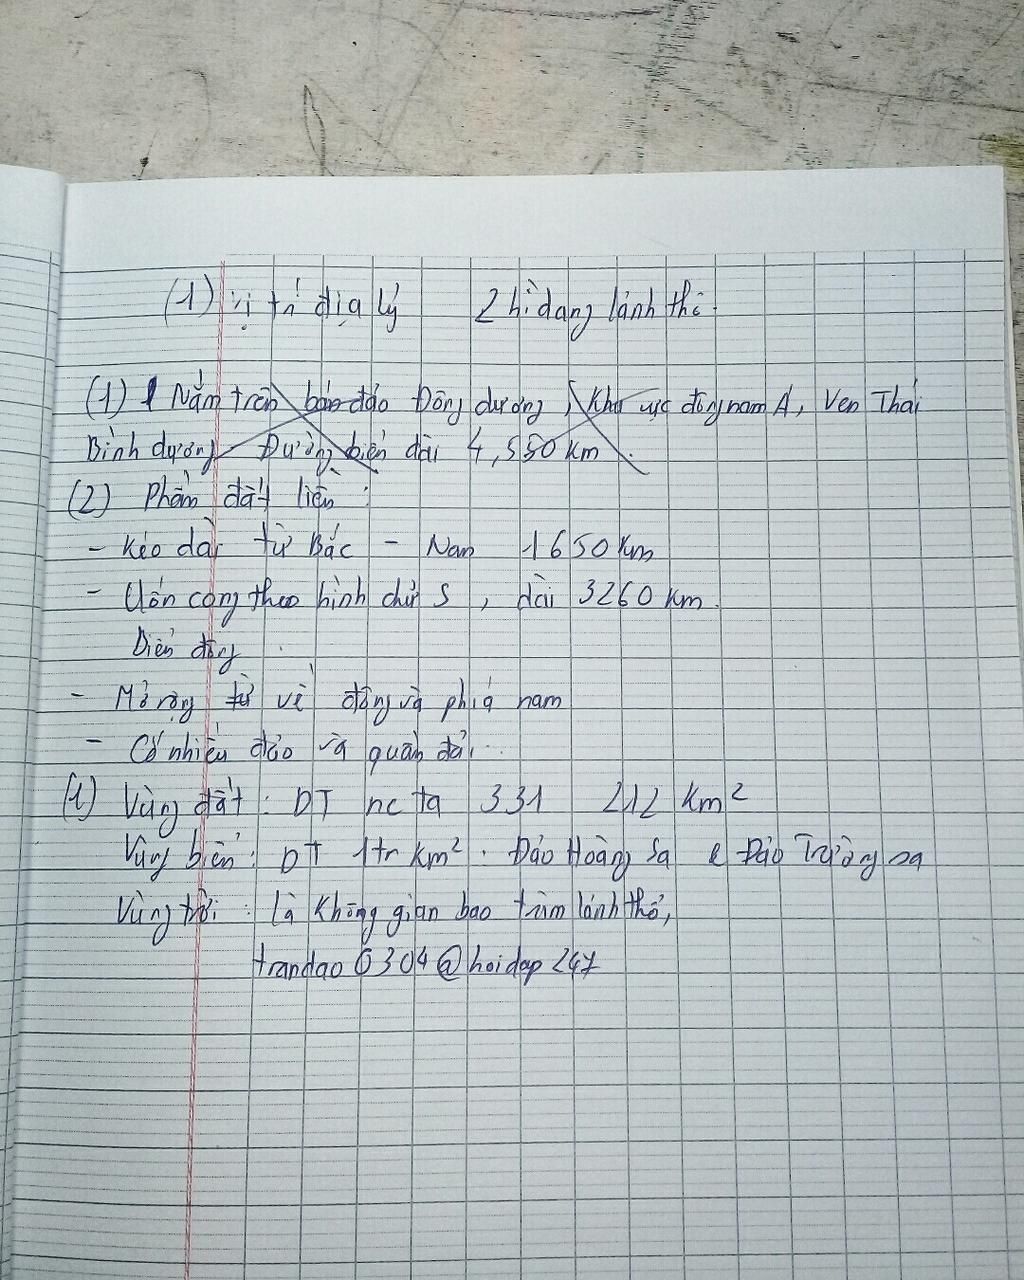 (1) vị trí địa lý 2 hì dạng lánh thổ.
(1) Nằm trên bán đảo Đông dương, Khu vực đông nam Á, Ven Thái
Bình dương Đường biển dài 4,550 km.
(2) Phần đất liền:
- Kéo dài từ Bắc - Nam 1650 Km
- Uốn cong theo hình chữ S, dài 3260 km.
Biển đông.
- Mở rộng từ về đông và phiá nam
- Có nhiều đảo và quần đảo..
(1) Vùng đất: DT nc ta 331 212 km²
Vùng biển: DT 1tr km². Đảo Hoàng Sa & Đảo Trường sa
Vùng trời: là không gian bao trùm lánh thổ,
trandao0304@hoidap247